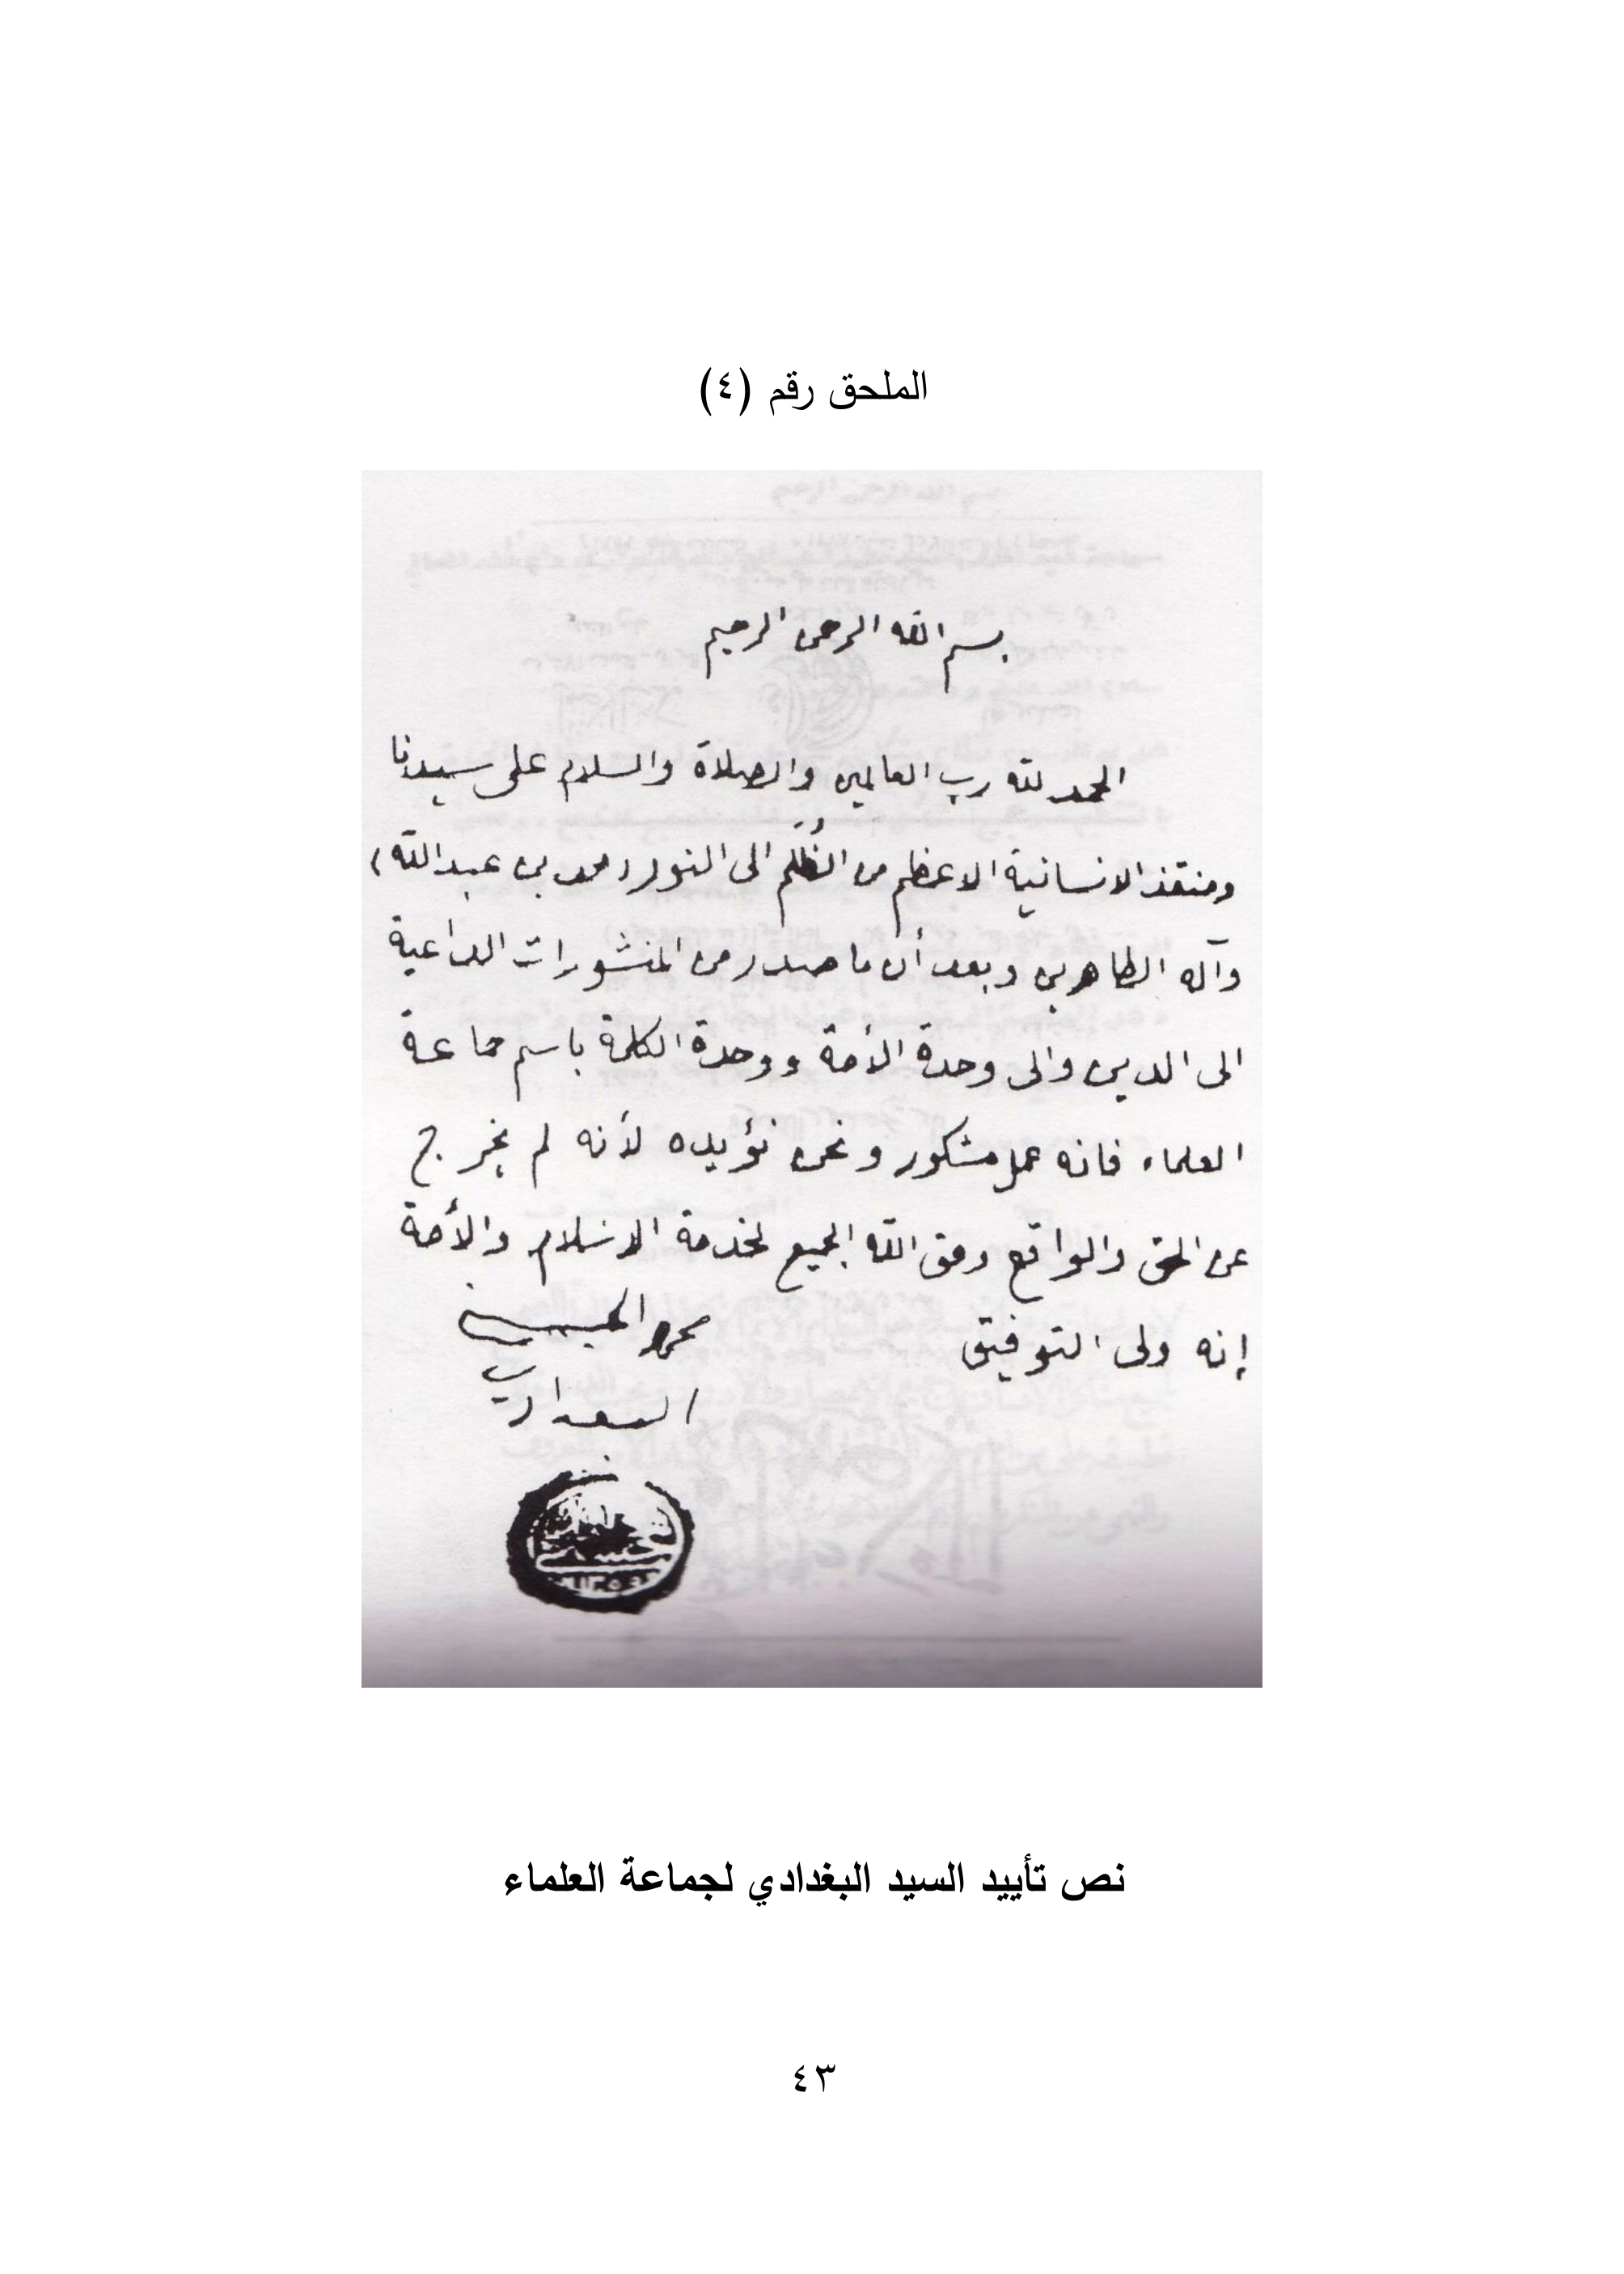 الملحق رقم (٤)
بسم الله الرحمن الرحيم
الحمد لله رب العالمين والصلاة والسلام على سيدنا
ومنقذ الانسانية الاعظم من الظُلَم الى النور (محمد بن عبدالله)
وآله الطاهرين وبعد أن ما صدر من المنشورات الداعية
الى الدين والى وحدة الأمة ووحدة الكلمة باسم جماعة
العلماء فانه عمل مشكور ونحن نؤيده لأنه لم يخرج
عن الحق والواقع وفق الله الجميع لخدمة الاسلام والأمة
إنه ولي التوفيق
الحسيني
البغدادي
نص تأييد السيد البغدادي لجماعة العلماء
٤٣